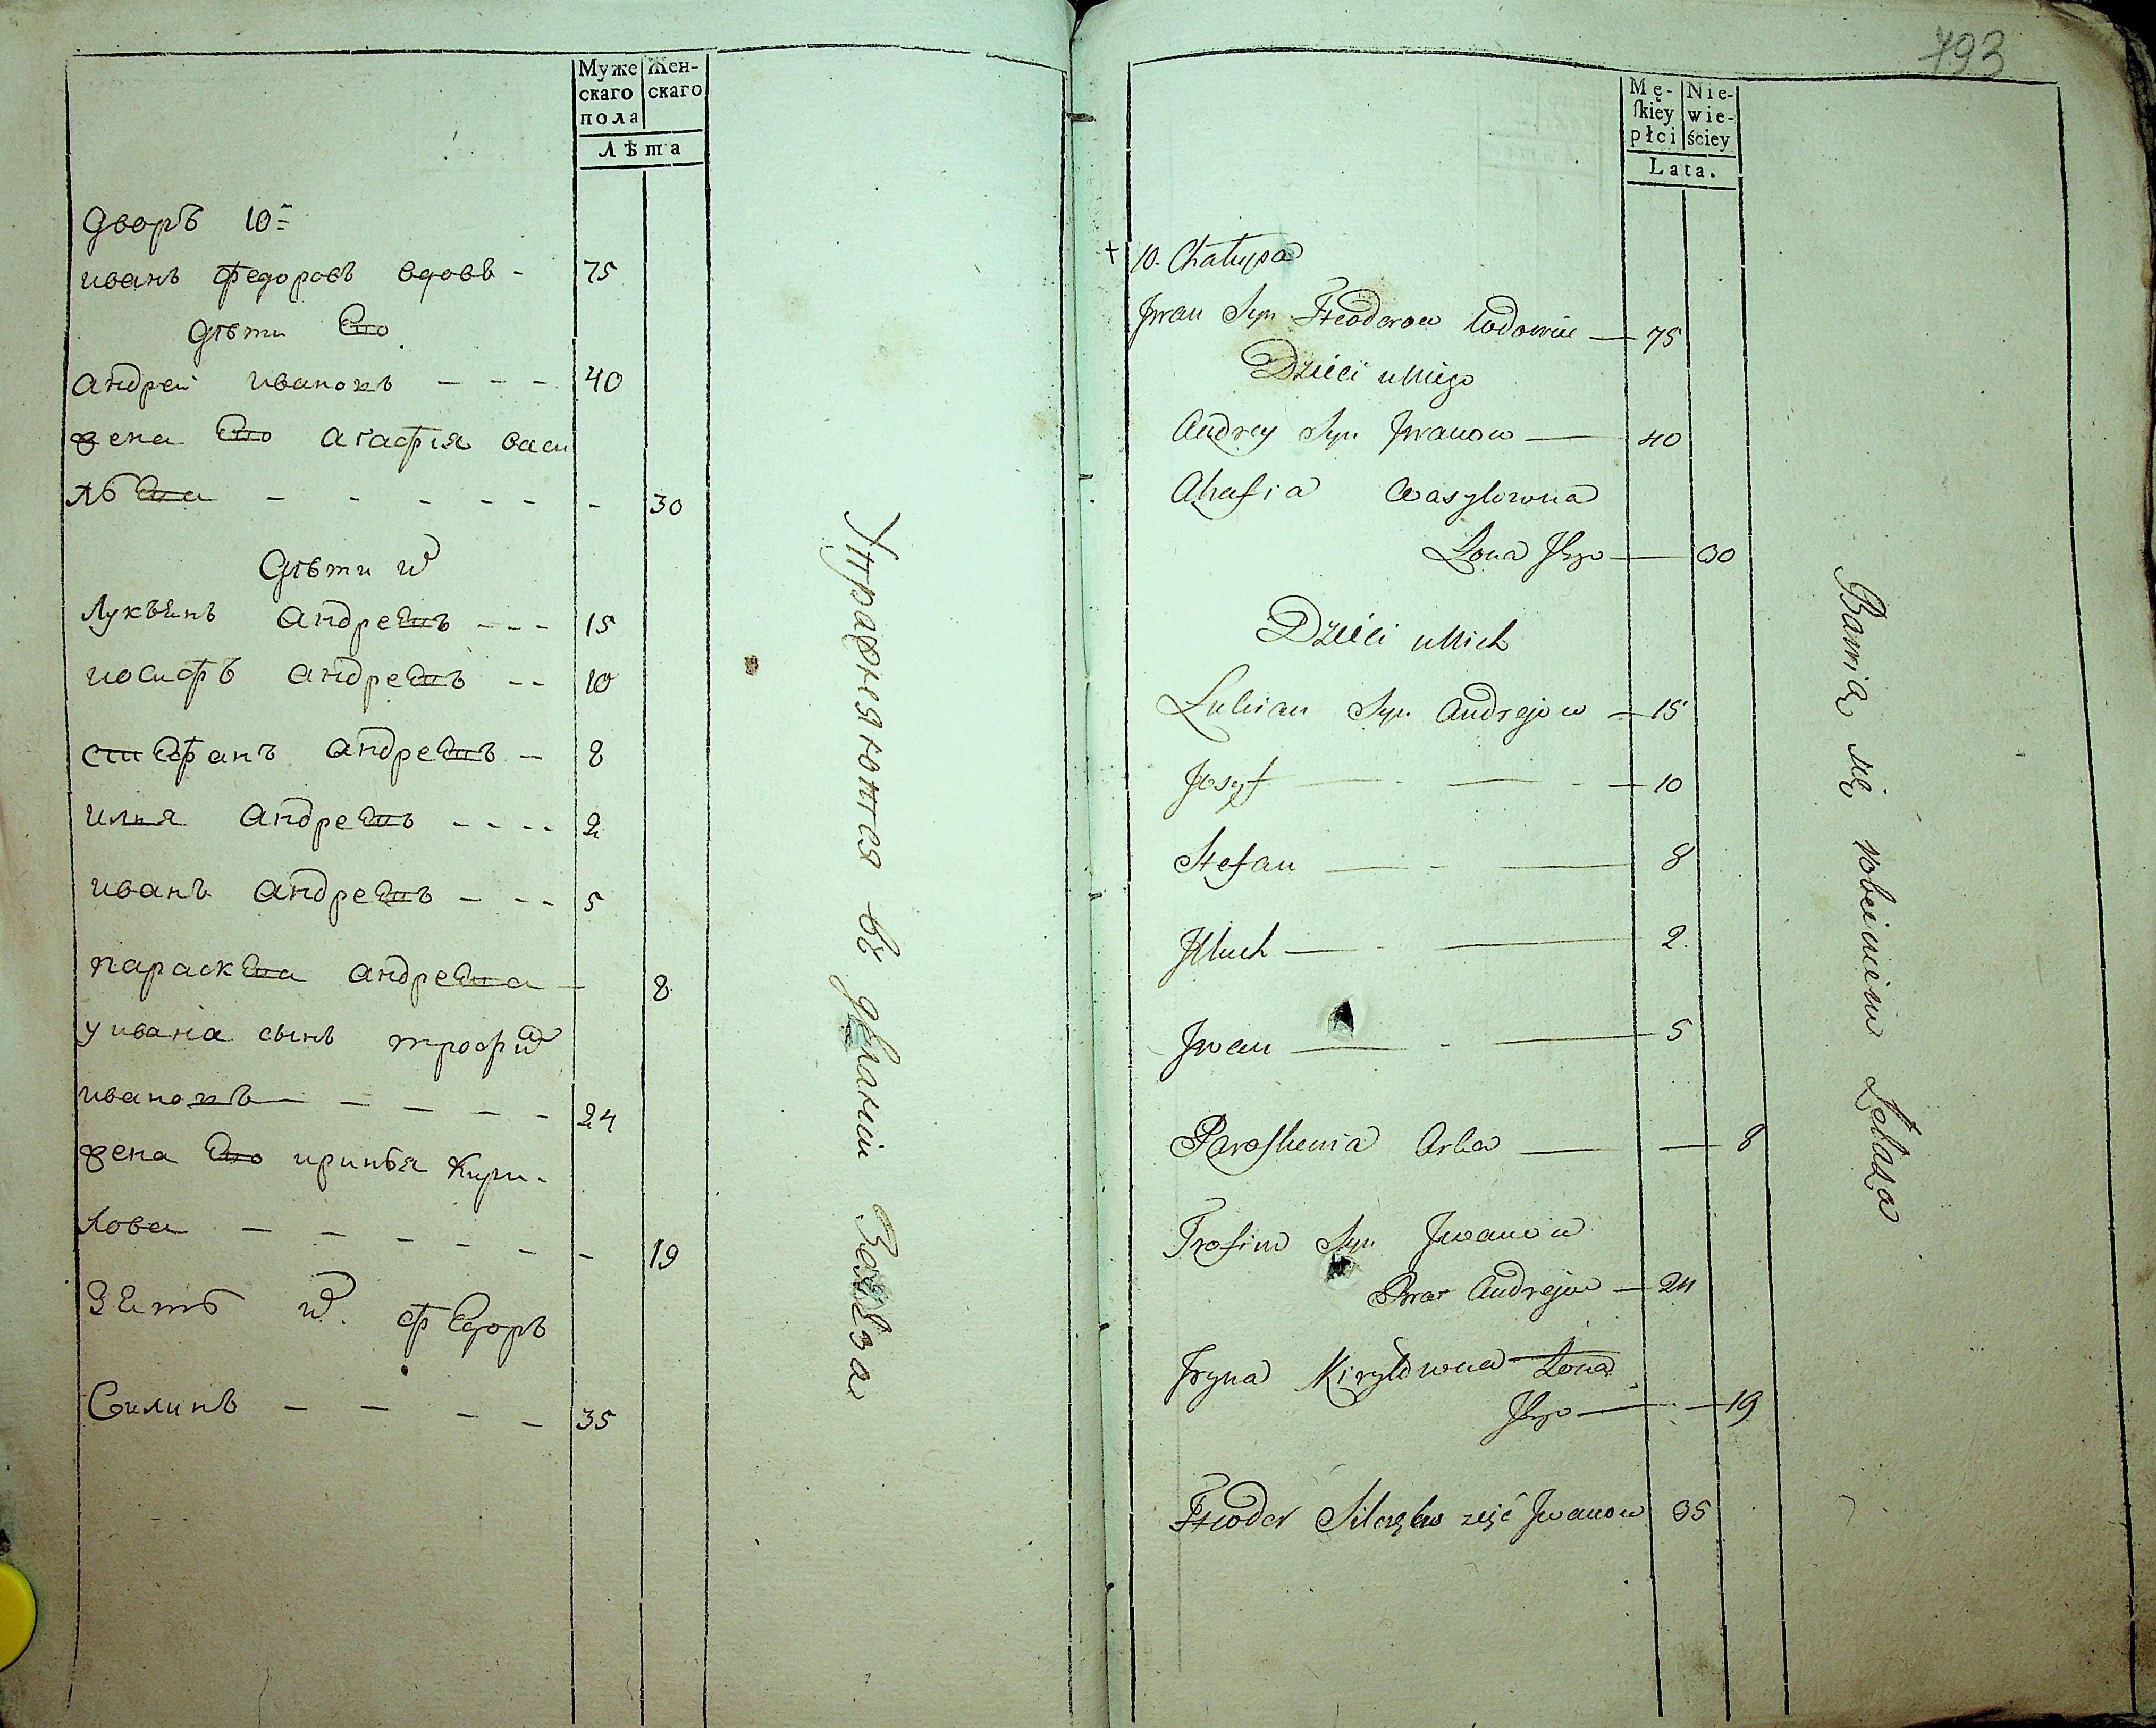 Муже Жен-
скаго скаго
пола
Лѣта
Дворъ 10й
иванъ федоровъ вдовъ - 75
Дѣти Его
андреи ивановъ - - - 40
жена Его агафія васи
льева - - - - - - 30
Дѣти их
Лукьянъ андреевъ - - - 15
иосифъ андреевъ - - 10
стефанъ андреевъ - 8
илья андреевъ - - - - 2
иванъ андреевъ - - - 5
параскева андреева - 8
у ивана сынъ трофим
ивановъ - - - - - 24
жена Его иринья Кири-
лова - - - - - - 19
зеть их федоръ
Силинъ - - - - 35
Упражняются въ дѣлании Залѣза
793
Mę- Nie-
skiey wie-
płci ściey
Lata.
+ 10. Chałupa
Jwan Syn Fteodorow Wdowiec — 75
Dzieci u Niego
Andrey Syn Jwanow — 40
Ahafia Wasylowna
Żona Jego — 30
Dzieci u Nich
Lukian Syn Andrejow — 15
Josyf — - — - — 10
Stefan — - — 8
Jlluch — - — 2.
Jwan — - — 5
Paraskewia Crka — — 8
Trofim Syn Jwanow
Brat Andrejow — 24
Jryna Kiryłowna Żona
Jego — - — 19
Fteodor zięć Jwanow 35
Bawią się robieniem Żelaza